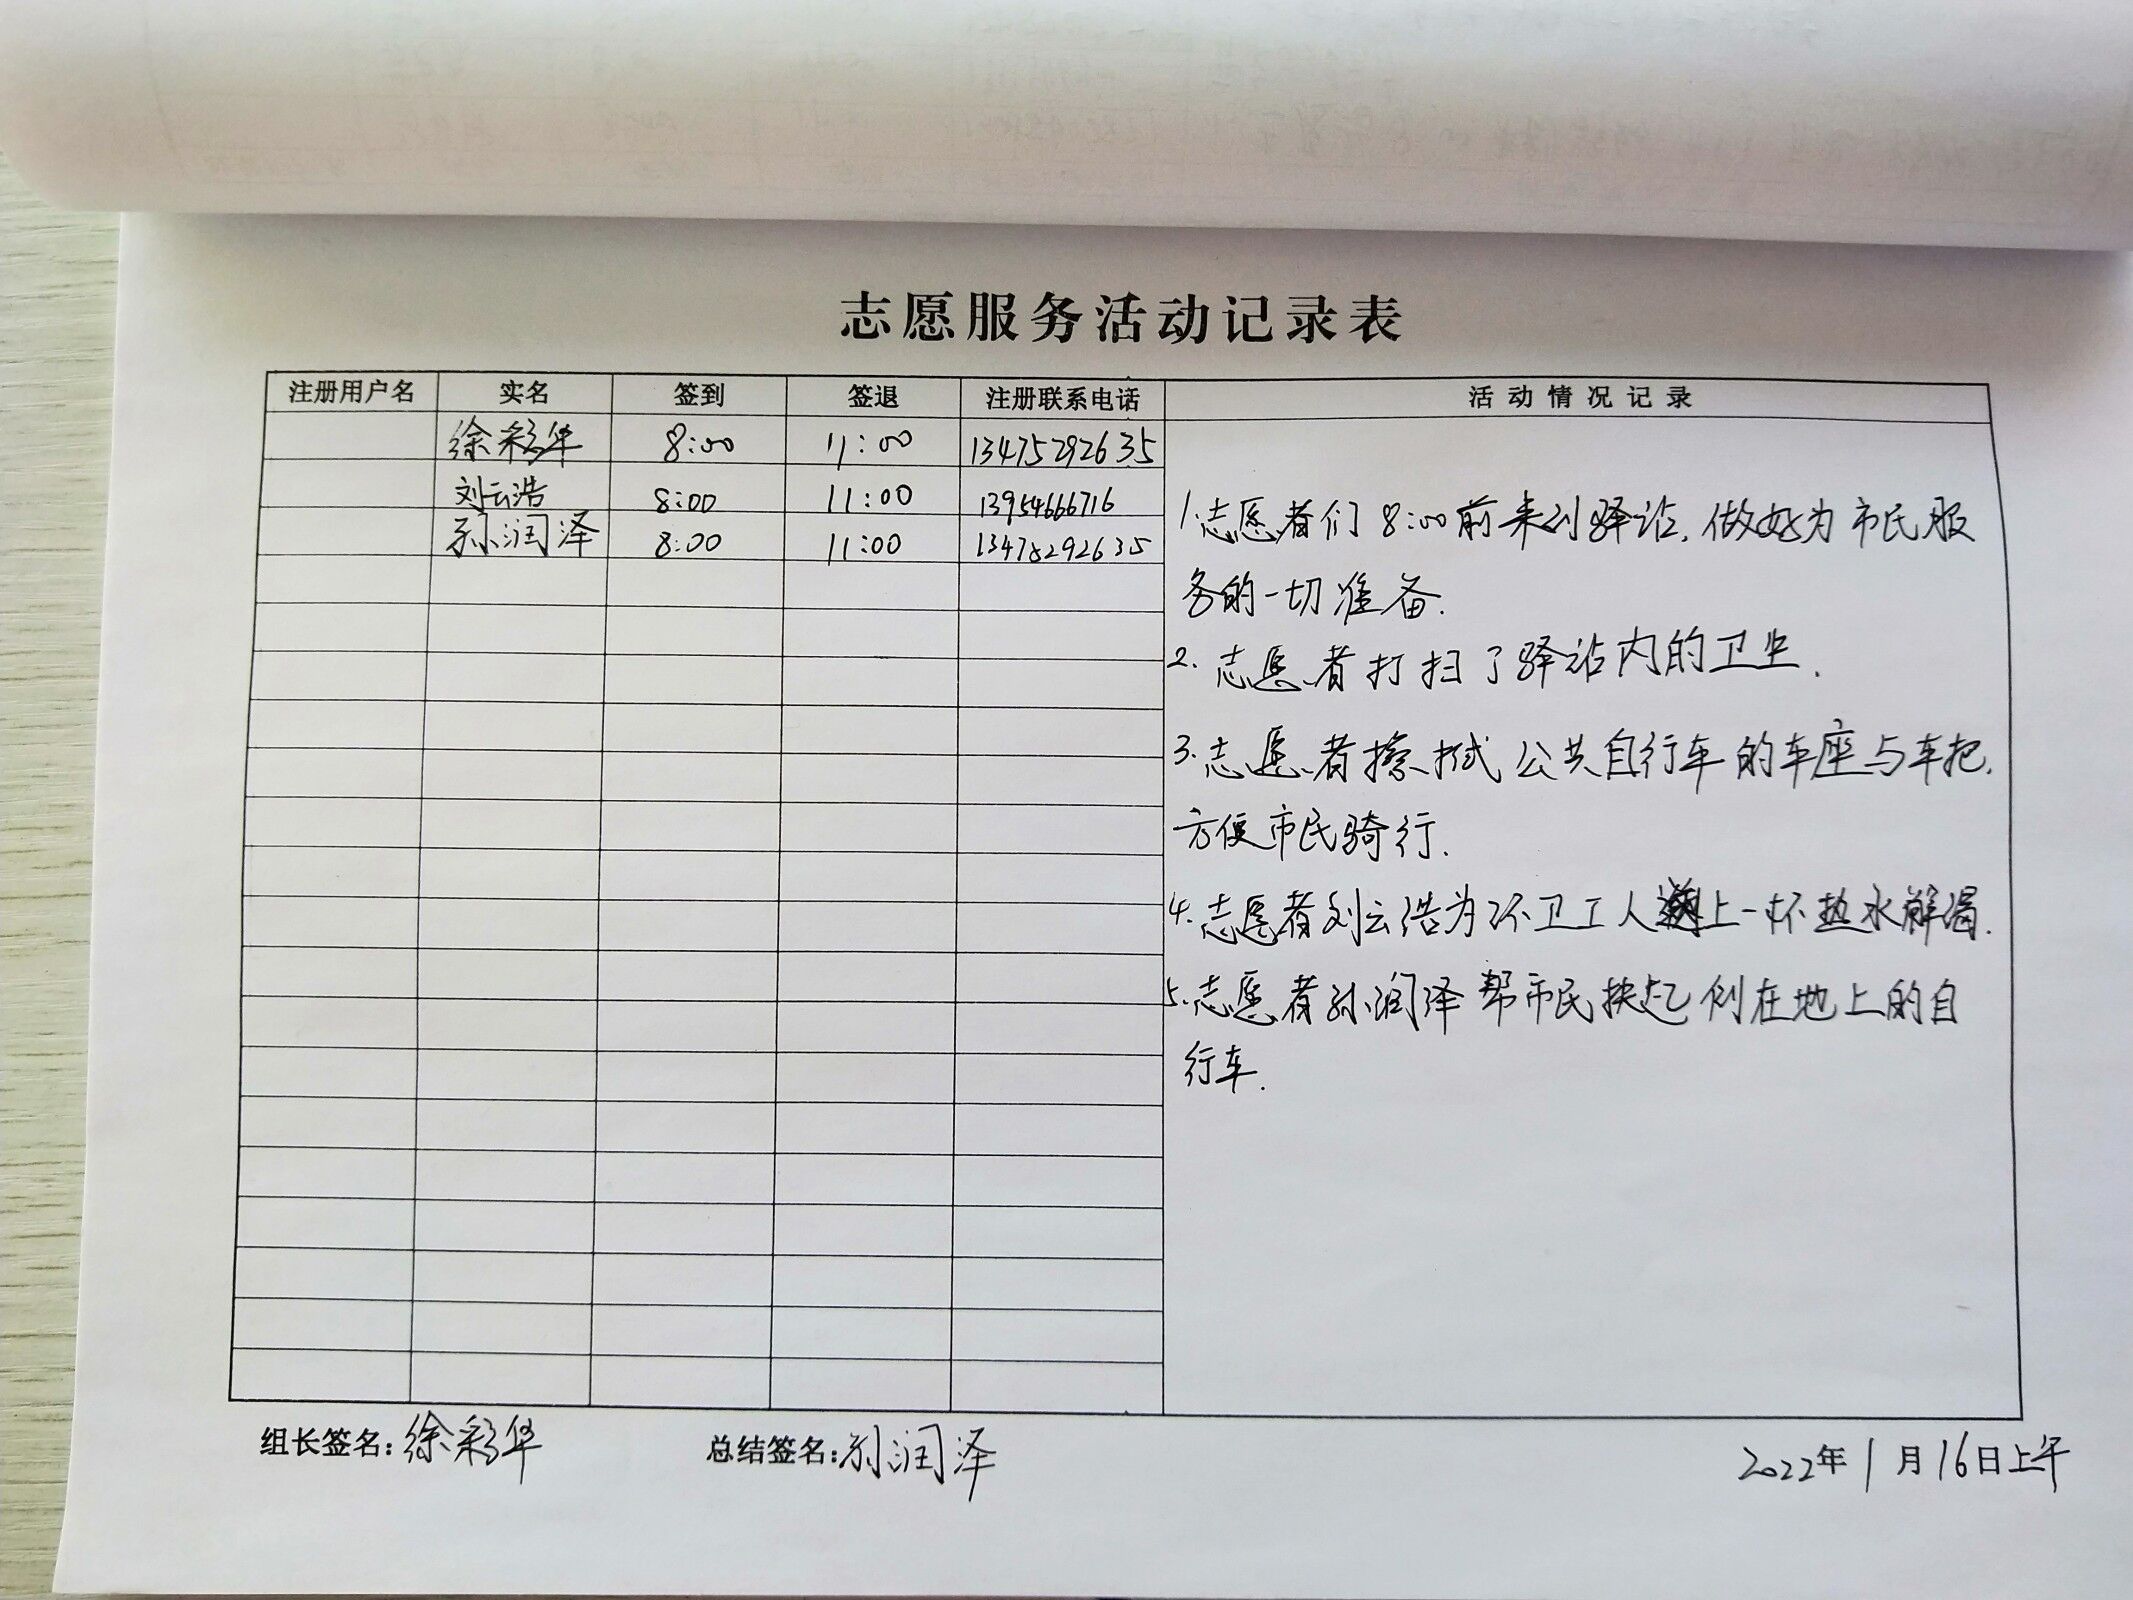 志愿服务活动记录表
注册用户名 实名 签到 签退 注册联系电话 活动情况记录
徐彩华 8:00 11:00 13475292635
刘云浩 8:00 11:00 13954666716
孙润泽 8:00 11:00 13475292635
1.志愿者们8:00前来到驿站,做好为市民服
务的一切准备.
2.志愿者打扫了驿站内的卫生.
3.志愿者擦拭公共自行车的车座与车把,
方便市民骑行.
4.志愿者刘云浩为环卫工人递上一杯热水解渴.
5.志愿者孙润泽帮市民扶起倒在地上的自
行车.
组长签名:徐彩华 总结签名:孙润泽 2022年1月16日上午